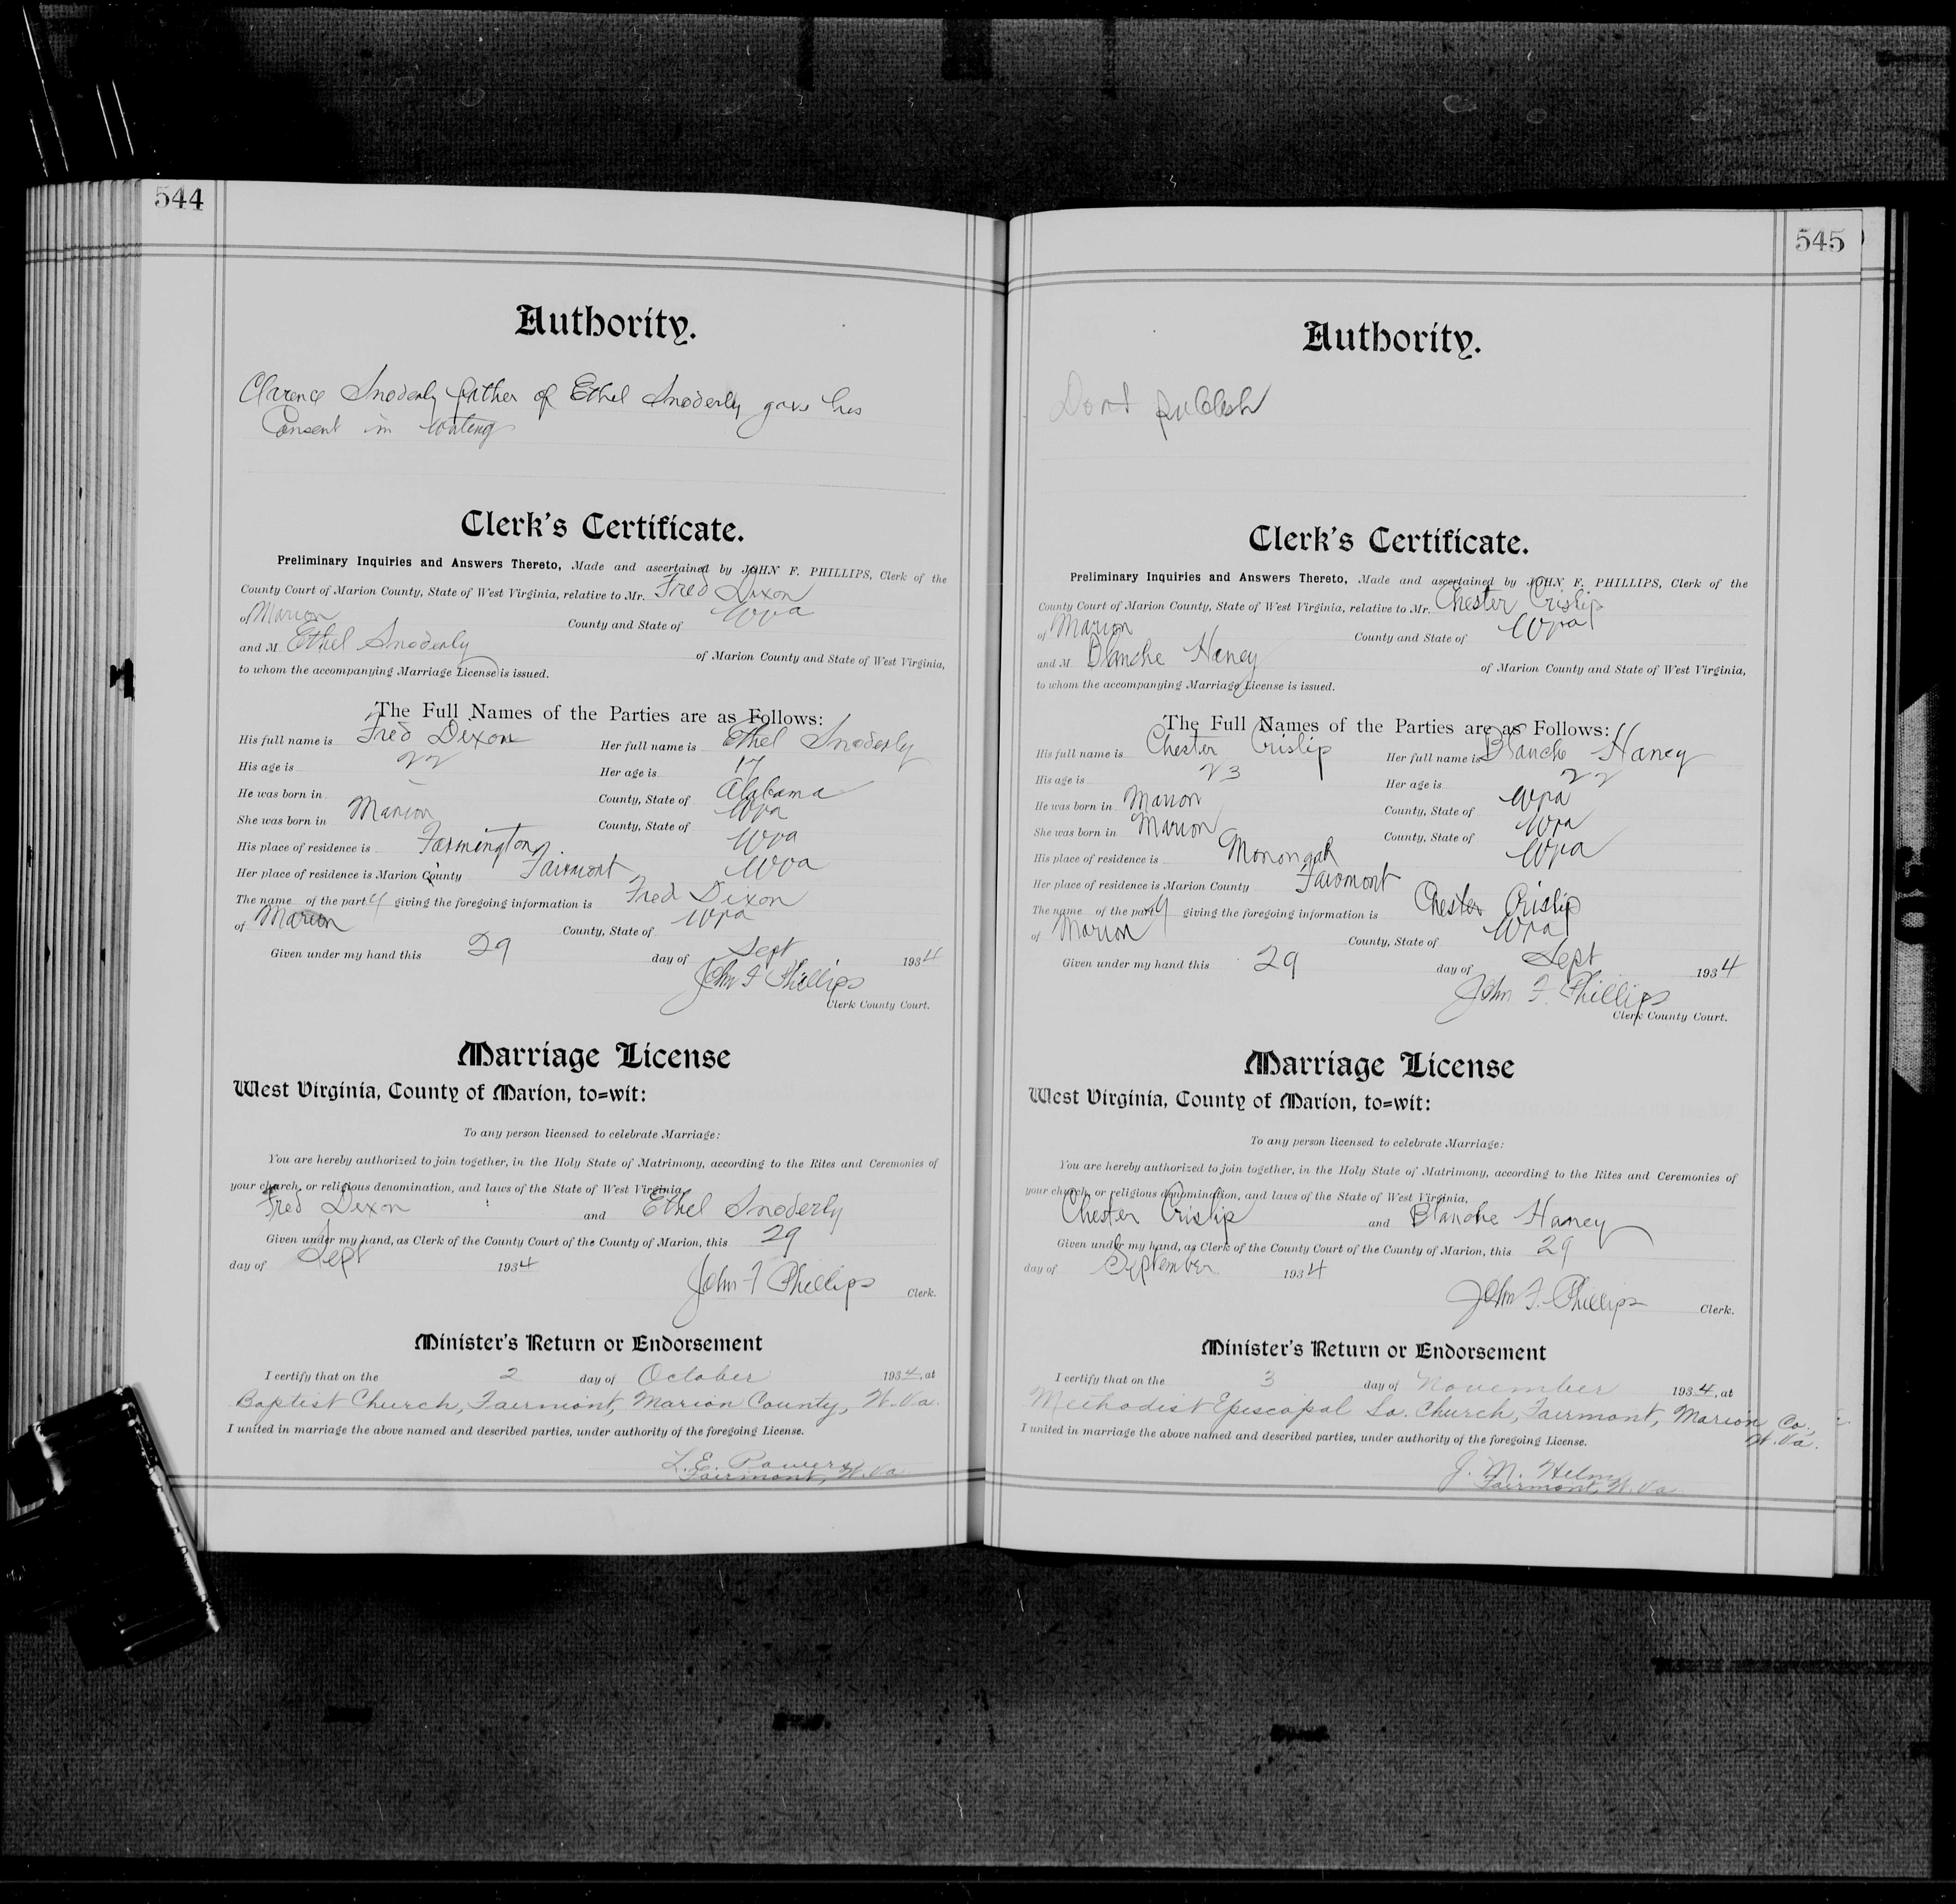 544
Authority.
Clarence Snoderly father of Ethel Snoderly gave his
Consent in writing
Clerk's Certificate.
Preliminary Inquiries and Answers Thereto, Made and ascertained by JOHN F. PHILLIPS, Clerk of the
County Court of Marion County, State of West Virginia, relative to Mr. Fred Dixon
of Marion County and State of Wva
and M Ethel Snoderly of Marion County and State of West Virginia,
to whom the accompanying Marriage License is issued.
The Full Names of the Parties are as Follows:
His full name is Fred Dixon Her full name is Ethel Snoderly
His age is 22 Her age is 17
He was born in — County, State of Alabama
She was born in Marion County, State of Wva
His place of residence is Farmington Wva
Her place of residence is Marion County Fairmont Wva
The name of the party giving the foregoing information is Fred Dixon
of Marion County, State of Wva
Given under my hand this 29 day of Sept 1934
John F Phillips
Clerk County Court.
Marriage License
West Virginia, County of Marion, to=wit:
To any person licensed to celebrate Marriage:
You are hereby authorized to join together, in the Holy State of Matrimony, according to the Rites and Ceremonies of
your church, or religious denomination, and laws of the State of West Virginia,
Fred Dixon and Ethel Snoderly
Given under my hand, as Clerk of the County Court of the County of Marion, this 29
day of Sept 1934
John F Phillips Clerk.
Minister's Return or Endorsement
I certify that on the 2 day of October 1934, at
Baptist Church, Fairmont, Marion County, W. Va.
I united in marriage the above named and described parties, under authority of the foregoing License.
L. E. Powers
Fairmont, W. Va
545
Authority.
Dont publish
Clerk's Certificate.
Preliminary Inquiries and Answers Thereto, Made and ascertained by JOHN F. PHILLIPS, Clerk of the
County Court of Marion County, State of West Virginia, relative to Mr. Chester Crislip
of Marion County and State of Wva
and M Blanche Haney of Marion County and State of West Virginia,
to whom the accompanying Marriage License is issued.
The Full Names of the Parties are as Follows:
His full name is Chester Crislip Her full name is Blanche Haney
His age is 23 Her age is 22
He was born in Marion County, State of Wva
She was born in Marion County, State of Wva
His place of residence is Monongah Wva
Her place of residence is Marion County Fairmont
The name of the party giving the foregoing information is Chester Crislip
of Marion County, State of Wva
Given under my hand this 29 day of Sept 1934
John F. Phillips
Clerk County Court.
Marriage License
West Virginia, County of Marion, to=wit:
To any person licensed to celebrate Marriage:
You are hereby authorized to join together, in the Holy State of Matrimony, according to the Rites and Ceremonies of
your church, or religious denomination, and laws of the State of West Virginia,
Chester Crislip and Blanche Haney
Given under my hand, as Clerk of the County Court of the County of Marion, this 29
day of September 1934
John F. Phillips Clerk.
Minister's Return or Endorsement
I certify that on the 3 day of November 1934, at
Methodist Episcopal So. Church, Fairmont, Marion Co.,
W. Va.
I united in marriage the above named and described parties, under authority of the foregoing License.
J. M. Helm
Fairmont, W. Va